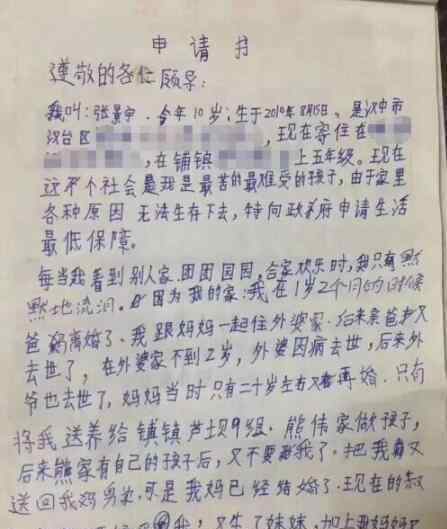 申请书
尊敬的各位领导:
我叫:张景宇.今年10岁;生于2010年8月15日.是汉中市
汉台区,现在寄住在
,在铺镇上五年级。现在
这个社会是我是最苦的最难受的孩子,由于家里
各种原因 无法生存下去,特向政府申请生活
最低保障。
每当我看到别人家.团团圆圆,合家欢乐时,我只有默
默地流泪。因为我的家:我在1岁2个月的时候
爸妈离婚了、我跟妈妈一起住外婆家.后来亲爸又
去世了,在外婆家不到2岁,外婆因病去世,后来外
爷也去世了,妈妈当时只有二十岁左右又再婚.只有
将我送养给铺镇芦坝9组.熊伟家做孩子,
后来熊家有自己的孩子后,又不要我了.把我又
送回我妈身边.可是我妈已经结婚了.现在的叔
我,又生了妹妹.加上我妈妈又